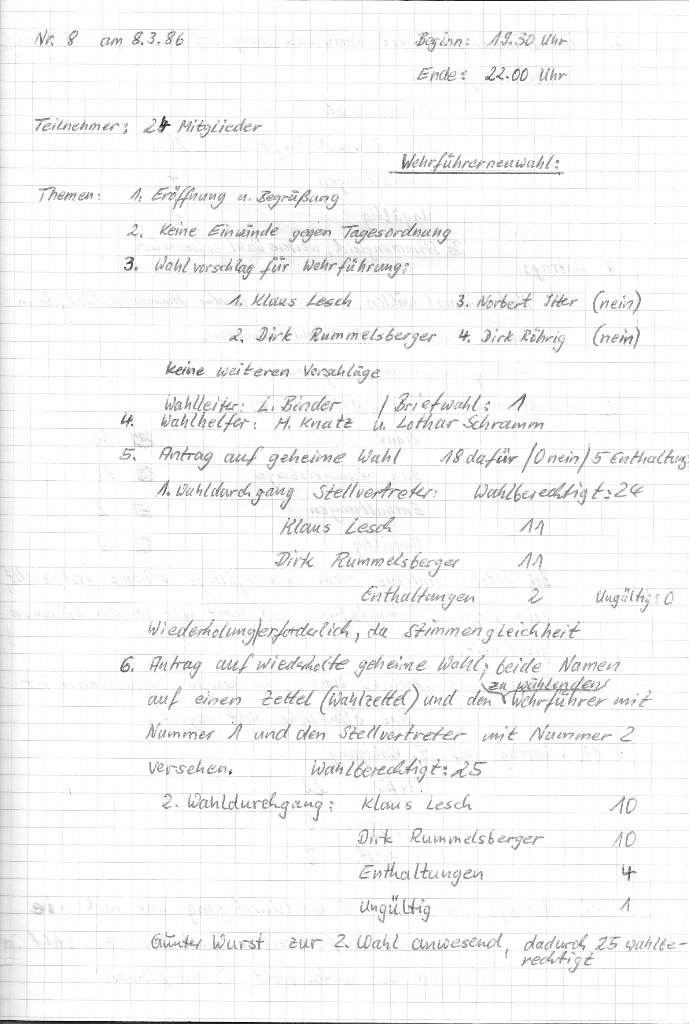 Nr. 8 am 8.3.86 Beginn: 19.30 Uhr
Ende: 22.00 Uhr
Teilnehmer: 24 Mitglieder
Wehrführerneuwahl:
Themen: 1. Eröffnung u. Begrüßung
2. Keine Einwände gegen Tagesordnung
3. Wahlvorschlag für Wehrführung:
1. Klaus Lesch 3. Norbert Itter (nein)
2. Dirk Rummelsberger 4. Dirk Röhrig (nein)
keine weiteren Vorschläge
Wahlleiter: L. Binder / Briefwahl: 1
4. Wahlhelfer: M. Knatz u. Lothar Schramm
5. Antrag auf geheime Wahl 18 dafür / 0 nein / 5 Enthaltung
1. Wahldurchgang Stellvertreter: Wahlberechtigt: 24
Klaus Lesch 11
Dirk Rummelsberger 11
Enthaltungen 2 Ungültig: 0
Wiederholung erforderlich, da Stimmengleichheit
6. Antrag auf wiederholte geheime Wahl; beide Namen
auf einen Zettel (Wahlzettel) und den zu wählenden Wehrführer mit
Nummer 1 und den Stellvertreter mit Nummer 2
versehen. Wahlberechtigt: 25
2. Wahldurchgang: Klaus Lesch 10
Dirk Rummelsberger 10
Enthaltungen 4
Ungültig 1
Günter Wurst zur 2. Wahl anwesend, dadurch 25 wahlbe-
rechtigt